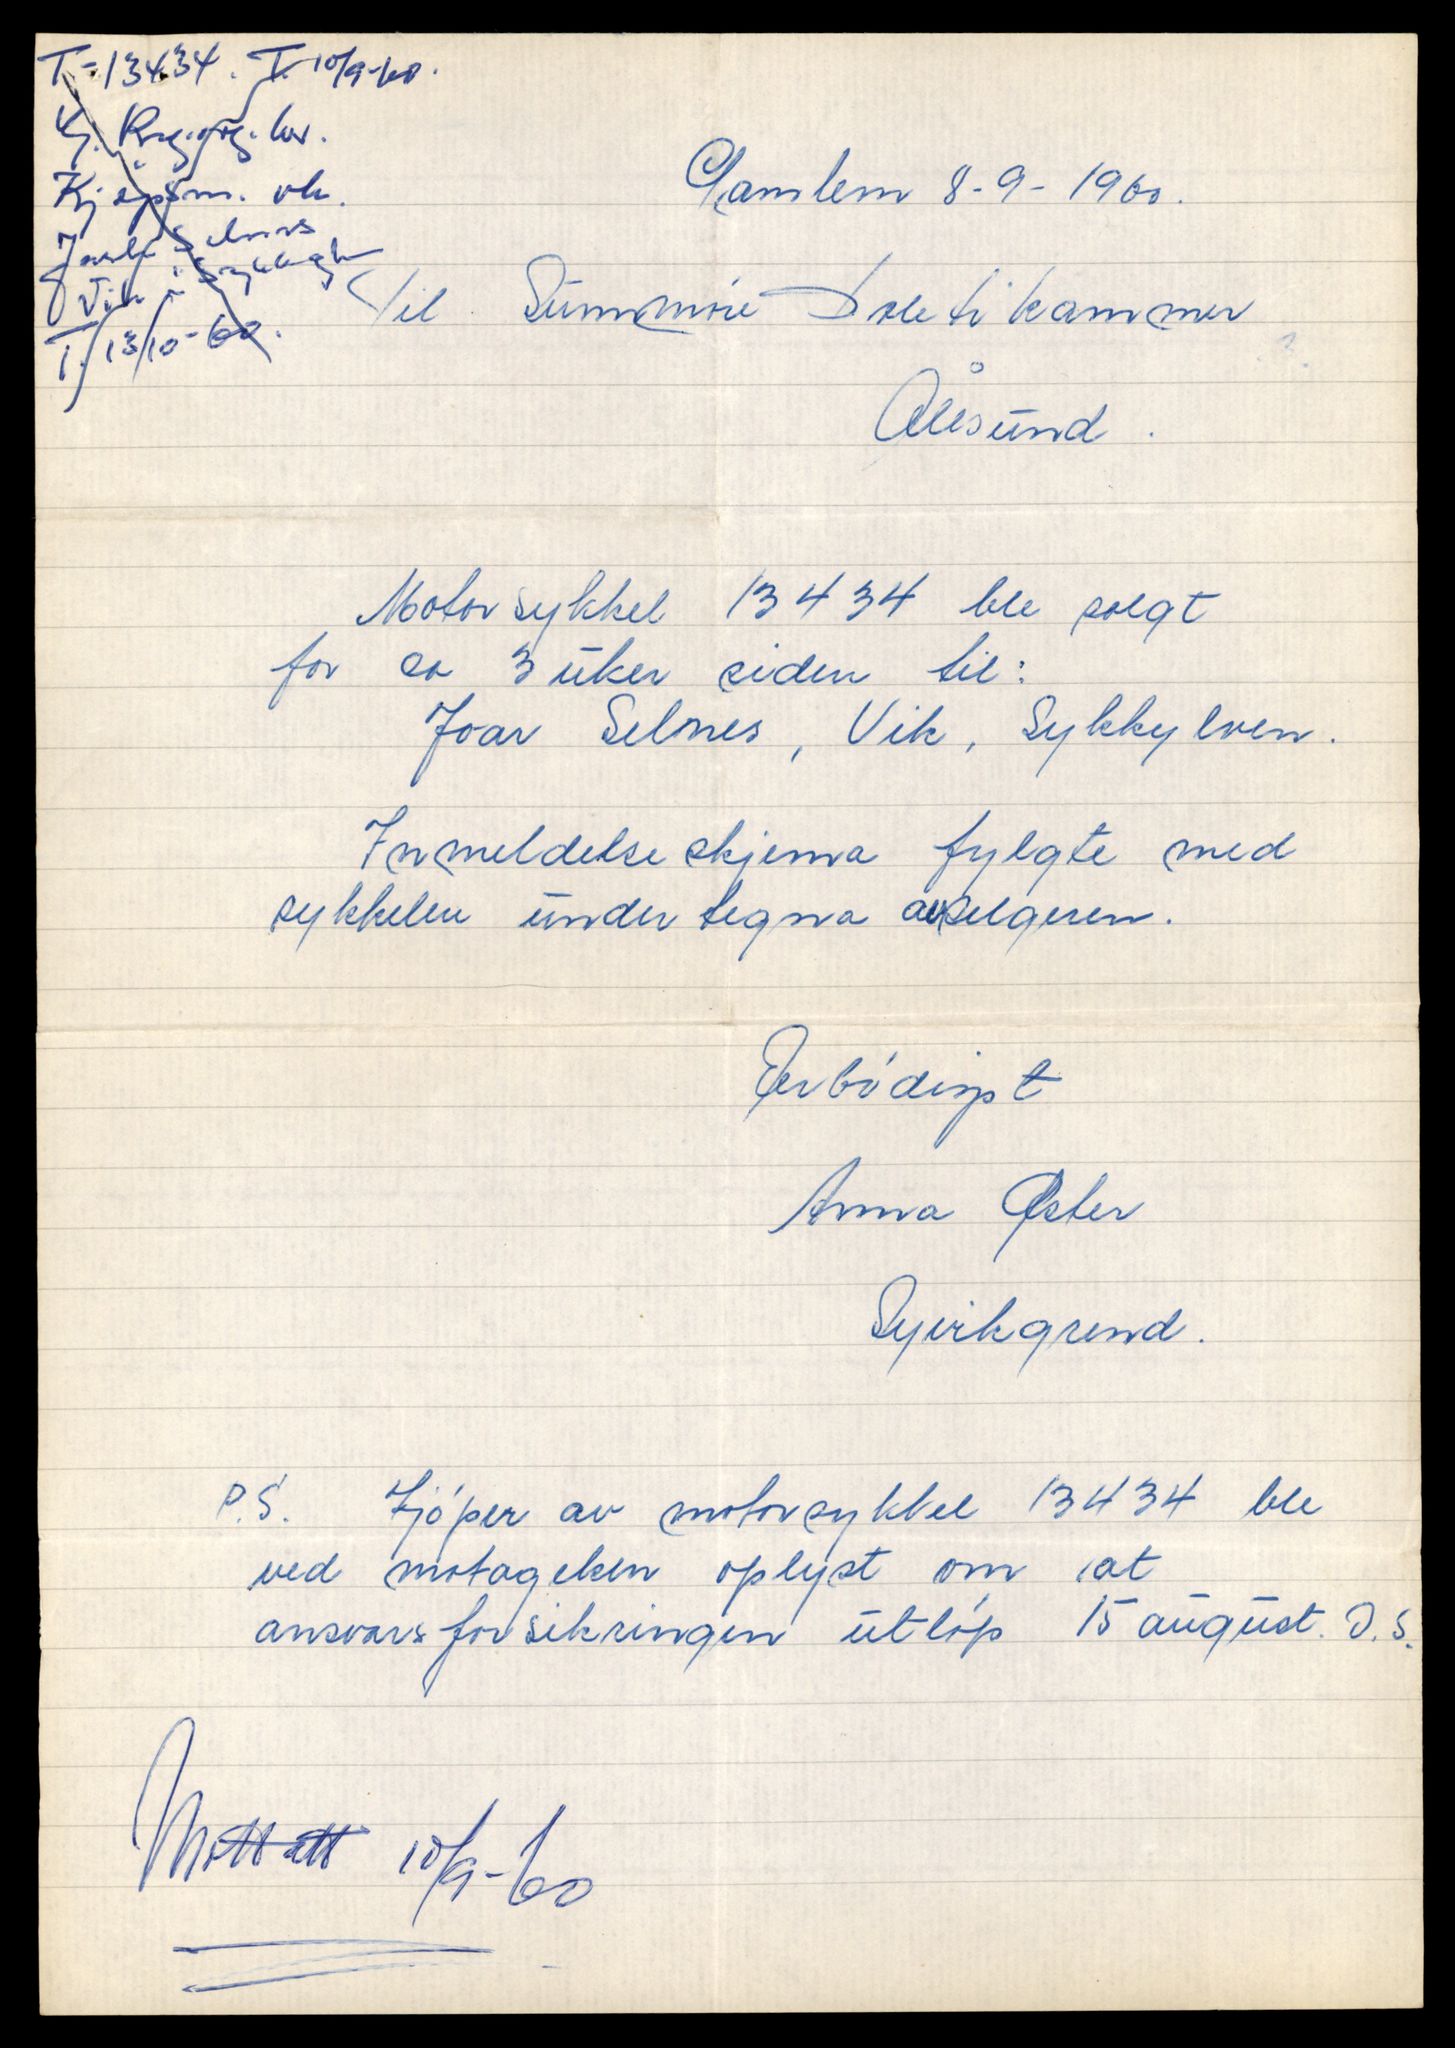 T-13434. T. 10/9-60.
Kj. Reg.
Kjøpsm. vk.
Selnes
Vik i Sykkylv
T. 13/10-60.
Gamlem 8-9-1960.
Til Sunnmöre Politikammer
Ålesund.
Motorsykkel 13434 ble solgt
for ca 3 uker siden til:
Joar Selnes, Vik, Sykkylven.
Innmeldelseskjema fylgte med
sykkelen undertegna av selgeren.
Ærbödigst
Anna Øster
Syvikgrend.
P.S. Kjöper av motorsykkel 13434 ble
ved motagelsen oplyst om at
ansvarsforsikringen utlöp 15 august. D.S.
Mottatt 10/9-60